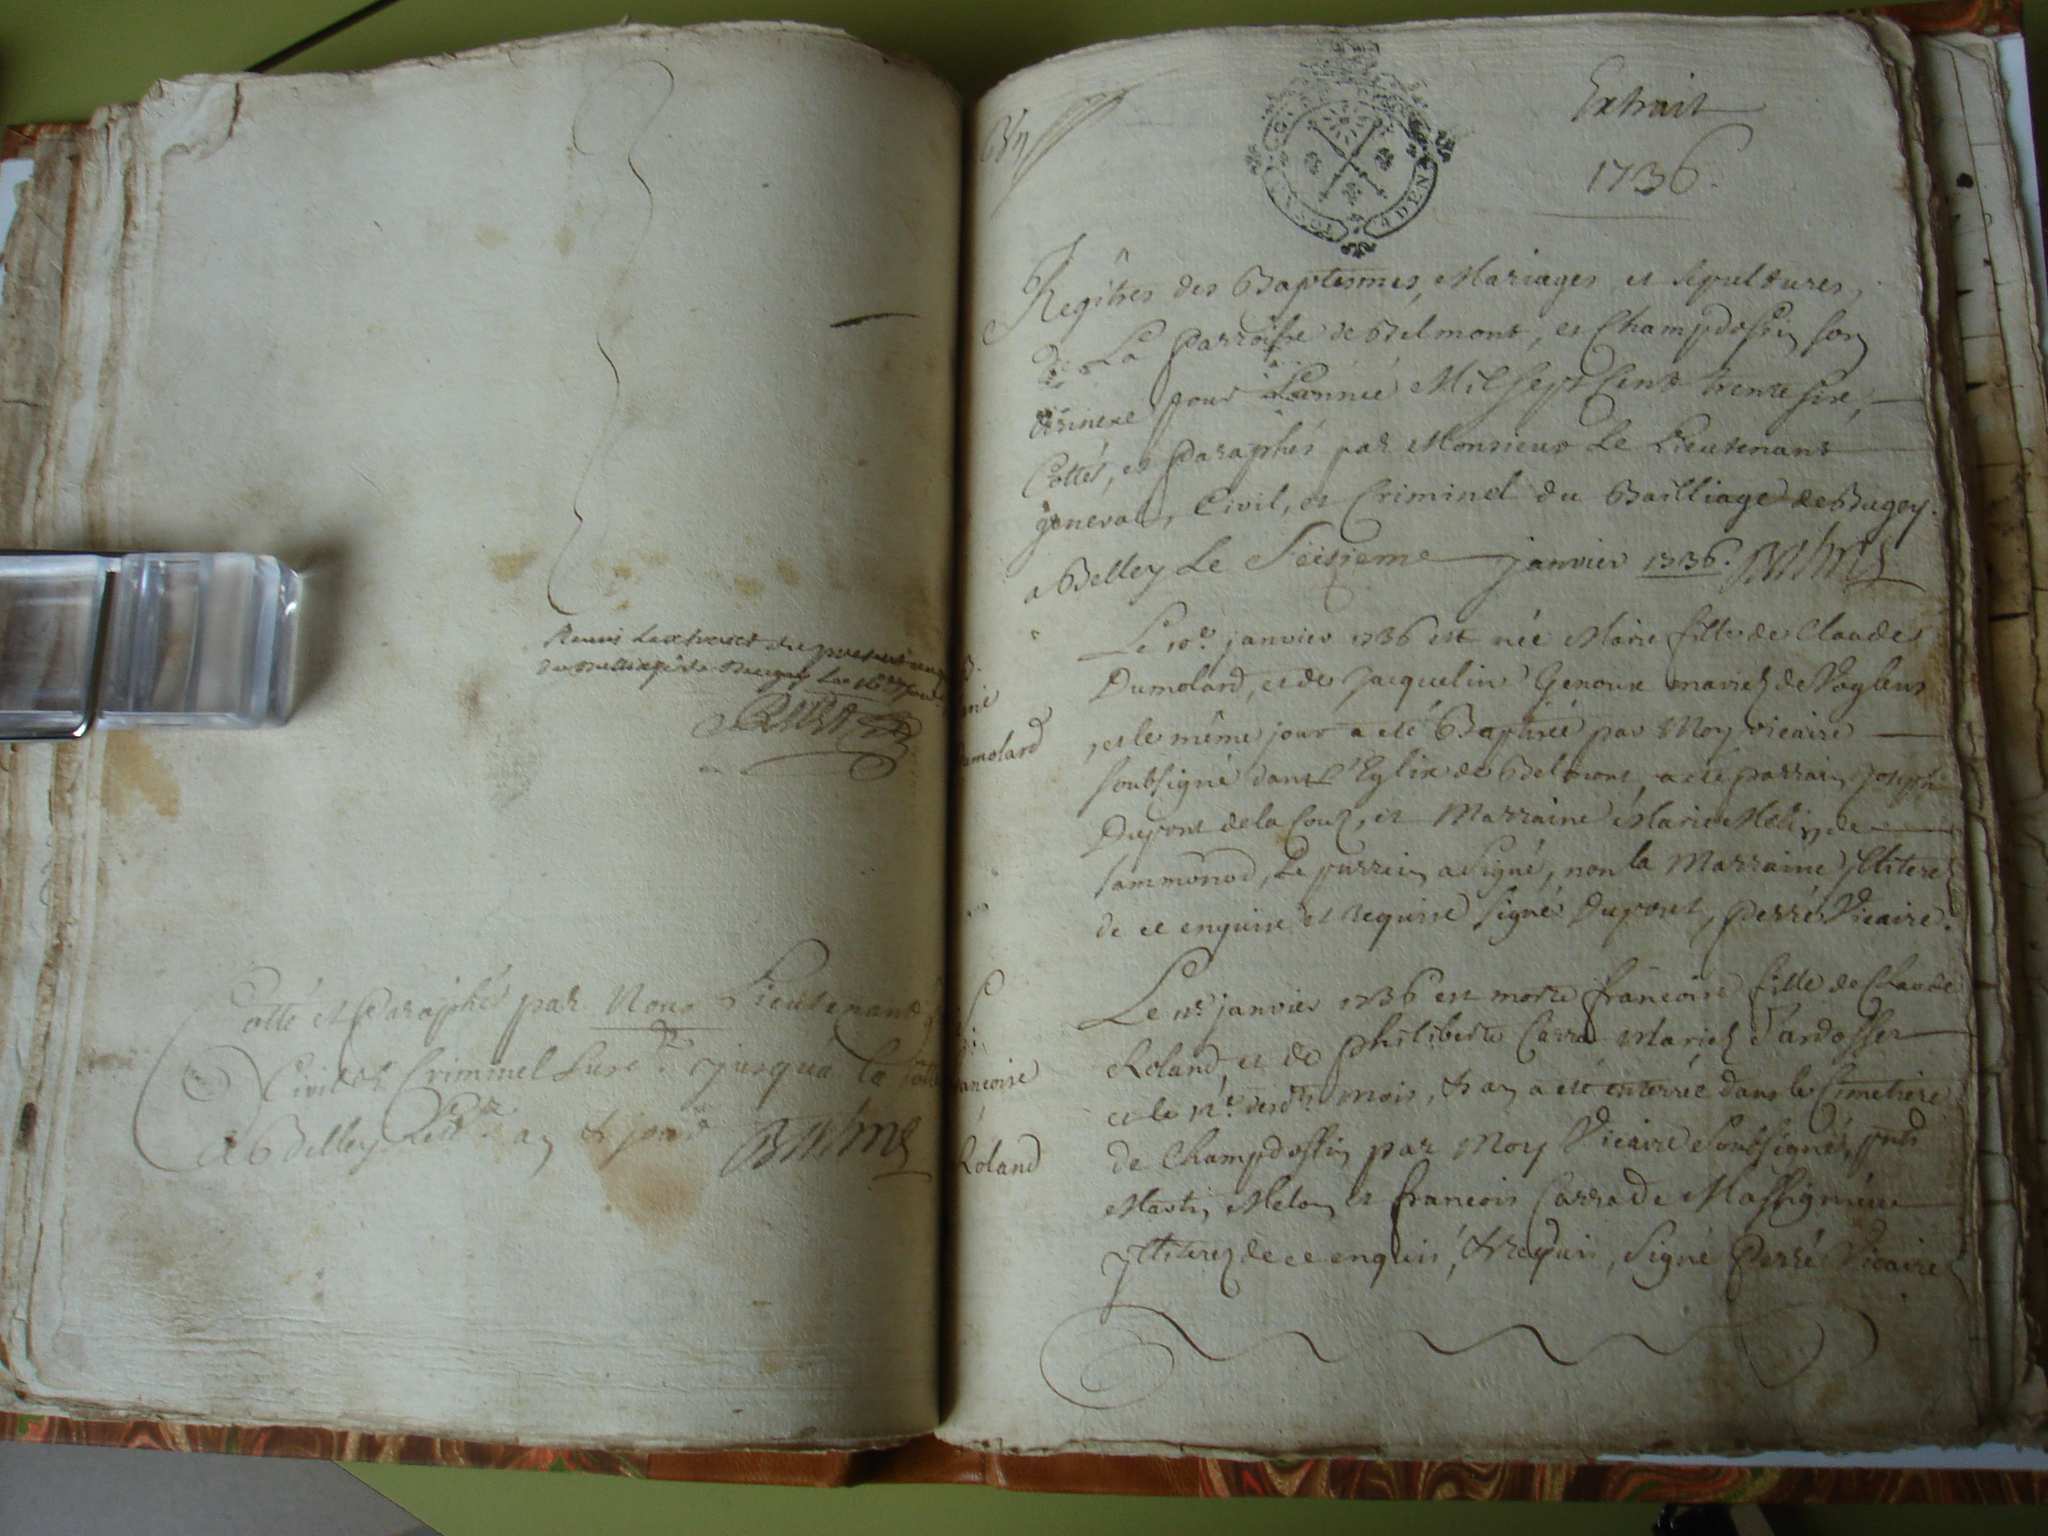 Receu Lextrait du present
du Bailliage de Bugey Le
Cotté et Paraphé par Nous Lieutenant
Civil et Criminel jusqua la
A Belley
Extrait
1736.
Regîtres des Baptesmes, Mariages et sepultures,
de La parroisse de Belmont, et Champdossin son
annexe pour Lannée Mil Sept Cent trente six,
Cottés, et Paraphés par Monsieur Le Lieutenant
general, Civil, et Criminel du Bailliage de Bugey.
a Belley Le Seizieme janvier 1736.
Dumolard
Le 10e. janvier 1736 est née Marie fille de Claude
Dumolard, et de Jacqueline Genoux mariez de Voglens
et le même jour a eté Baptisée par Moy vicaire
soubsigné dans l'Eglise de Belmont, a eté parrain Joseph
Dupont de la Cour, et Marraine Marie Melin de
Sammonod, Le parrain a signé, non la Marraine Illiteré
de ce enquise et requise signé Dupont, Perré Vicaire.
francoise
Roland
Le janvier 1736 est morte francoise fille de Claude
Roland, et de Philiberte Carra Mariez d'ardosset
et le 12e. desdts mois, & an a eté enterrée dans le Cimetiere
de Champdossin par Moy Vicaire soubsigné, pnts
Martin Melon et francois Carra de Massignieu
Illiterez de ce enquis, & requis, signé Perré Vicaire